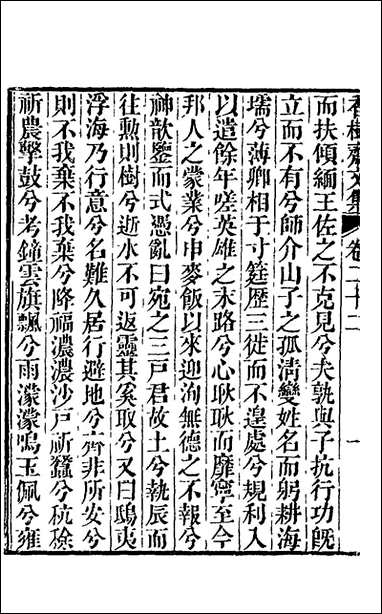 香樹齋文集 卷二十二 一
而扶傾緬王佐之不克見兮夫孰與子抗行功旣
立而不有兮師介山子之孤清變姓名而躬耕海
壖兮薄卿相于寸筳歷三徙而不遑處兮規利入
以遣餘年嗟英雄之末路兮心耿耿而靡寧至今
邦人之蒙業兮申麥飯以來迎洵無德之不報兮
神歆鑒而式憑亂曰宛之三戸君故土兮執辰而
往勲則樹兮逝水不可返靈其奚取兮又曰鴟夷
浮海乃行意兮名難久居行避地兮齊非所安兮
則不我棄不我棄兮降福濃濃沙戸祈蠶兮秔稌
祈農擊鼓兮考鐘雲旗飄兮雨濛濛鳴玉佩兮雍